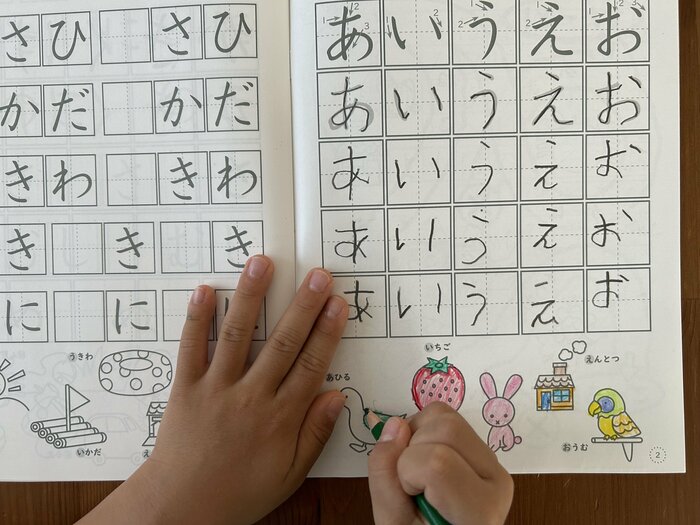 さひ さひ
かだ かだ
きわ きわ
き き き
に に に
うきわ
いかだ
え
あいうえお
あいうえお
あいうえお
あいうえお
あいうえお
いちご
えんとつ
あひる
おうむ
2